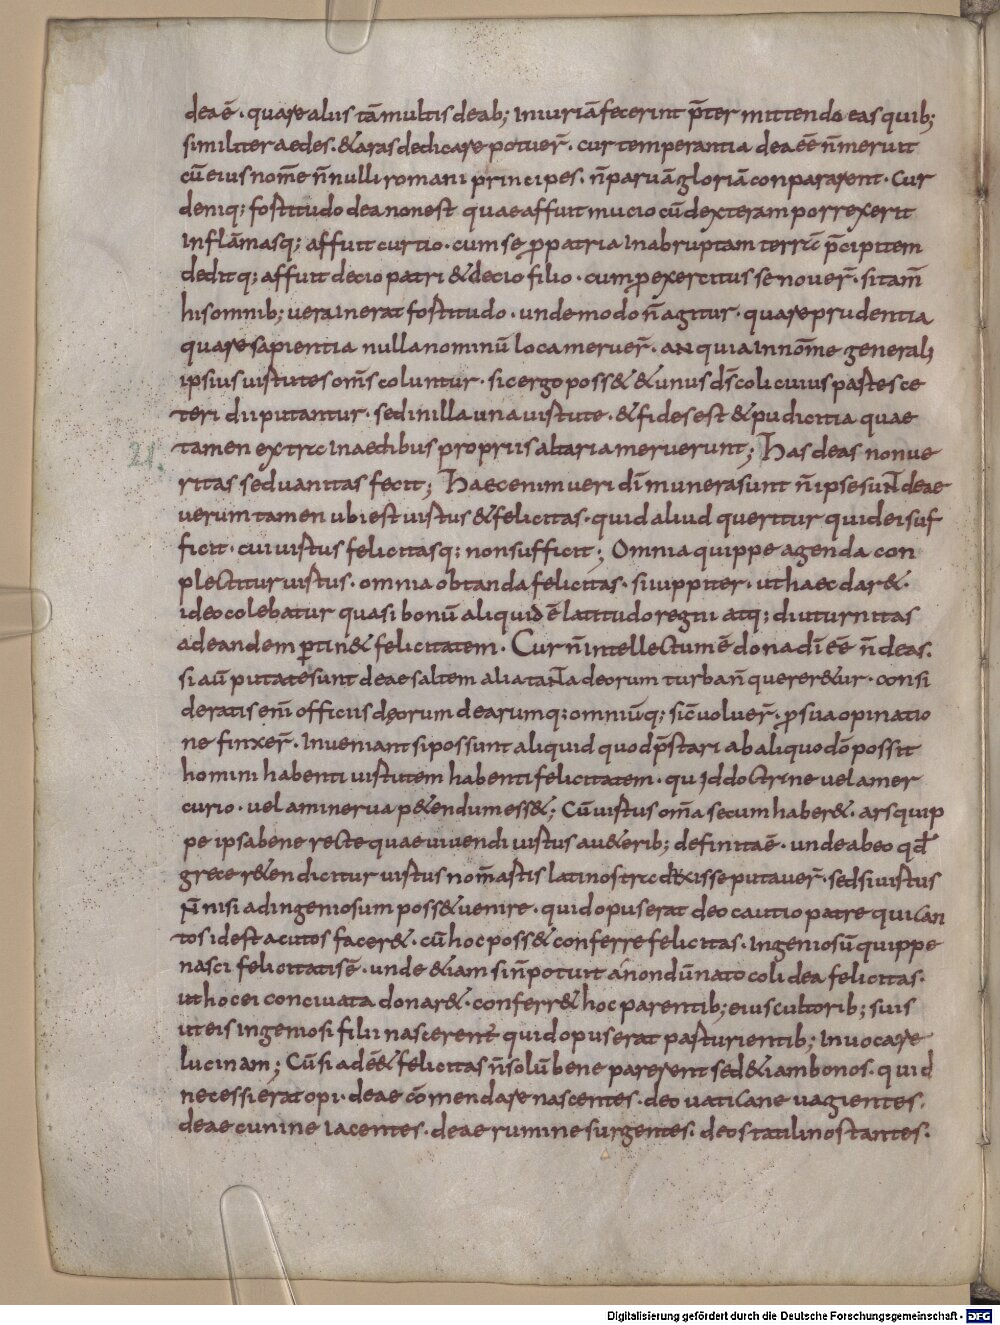 deaē · quare aliis tā multis deab; iniuriā fecerint p̄ter mittendo eas quib;
similiter aedes · & aras dedicare potuer̄ · cur temperantia dea eē n̄ meruit
cū eius nom̄e n̄nulli romani principes · n̄ paruā gloriā conpararent · Cur
deniq; fortitudo dea non est quae affuit mucio cū dexteram porrexerit
in flāmasq; affuit curtio · cum se p patria in abruptam terrā p̄cipitem
deditq; affuit decio patri & decio filio · cum p exercitus se nouer̄ · si tam̄
his omnib; uera inerat fortitudo · unde modo n̄ agitur · quare prudentia
quare sapientia nulla nominū loca meruer̄ · AN quia in nom̄e general;
ipsius uirtutes om̄s coluntur · sic ergo poss& & unus d̄s coli cuius partes ce
teri dii putantur · sed in illa una uirtute · & fides est & pudicitia quae
tamen extra in aedibus propriis altaria meruerunt; Has deas non ue
21.
ritas sed uanitas fecit; Haec enim ueri dī munera sunt n̄ ipse suNT deae
uerum tamen ubi est uirtus & felicitas · quid aliud queritur quid ei suf
ficit · cui uirtus felicitasq; non sufficit; Omnia quippe agenda con
plectitur uirtus · omnia obtanda felicitas · si iuppiter · ut haec dar& ·
ideo colebatur quasi bonū aliquid ē latitudo regni atq; diuturnitas
ad eandem ptin& felicitatem · Cur n̄ intellectum ē dona dī eē n̄ deas.
si aū putate sunt deae saltem alia taNTa deorum turba n̄ querer&ur · consi
deratis enī officiis deorum dearumq; omniūq; sic̄ uoluer̄ · p sua opinatio
ne finxer̄ · Inueniant si possunt aliquid quod p̄stari ab aliquo dō possit
homini habenti uirtutem habenti felicitatem · quid doctrine uel a mer
curio · uel a minerua p&endum ess&; Cū uirtus om̄a secum haber& · ars quip
pe ipsa bene recte quae uiuendi uirtus a u&erib; definita ē · unde ab eo qd̄
grece r&en dicitur uirtus nom̄ artis latinos traxisse putauer̄ · sed si uirtus
N̄ nisi ad ingeniosum poss& uenire · quid opus erat deo cautio patre qui can
tos id est acutos facer& · cū hoc poss& conferre felicitas · Ingeniosū quippe
nasci felicitatis ē · unde &iam si n̄ potuit a nondū nato coli dea felicitas ·
ut hoc ei conciuata donar& · conferr& hoc parentib; eius cultorib; suis
ut eis ingeniosi filii nascerent quid opus erat parturientib; inuocare
lucinam; Cū si ad eē& felicitas n̄ solū bene parerent sed &iam bonos · quid
necessi erat opi · deae cōmendare nascentes · deo uaticane uagientes ·
deae cunine iacentes · deae rumine surgentes · deo statilino stantes ·
Digitalisierung gefördert durch die Deutsche Forschungsgemeinschaft - DFG